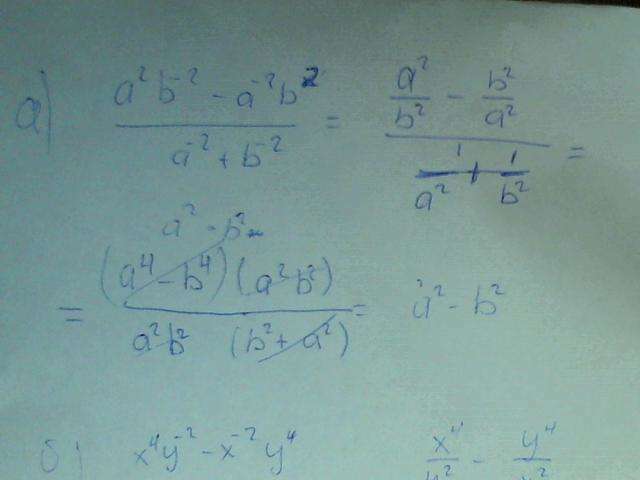 а) (a² b⁻² - a⁻² b²) / (a⁻² + b⁻²) = (a²/b² - b²/a²) / (1/a² + 1/b²) =
a² - b²
= (a⁴ - b⁴)(a² b²) / (a² b² (b² + a²)) = a² - b²
б) x⁴ y⁻² - x⁻² y⁴ x⁴ - y⁴